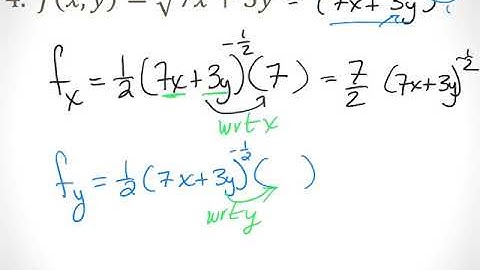 4. f(x, y) = √7x + 3y = (7x+3y)
f_x = 1/2 (7x+3y)^{-1/2} (7) = 7/2 (7x+3y)^{-1/2}
wrt x
f_y = 1/2 (7x+3y)^{-1/2} (   )
wrt y